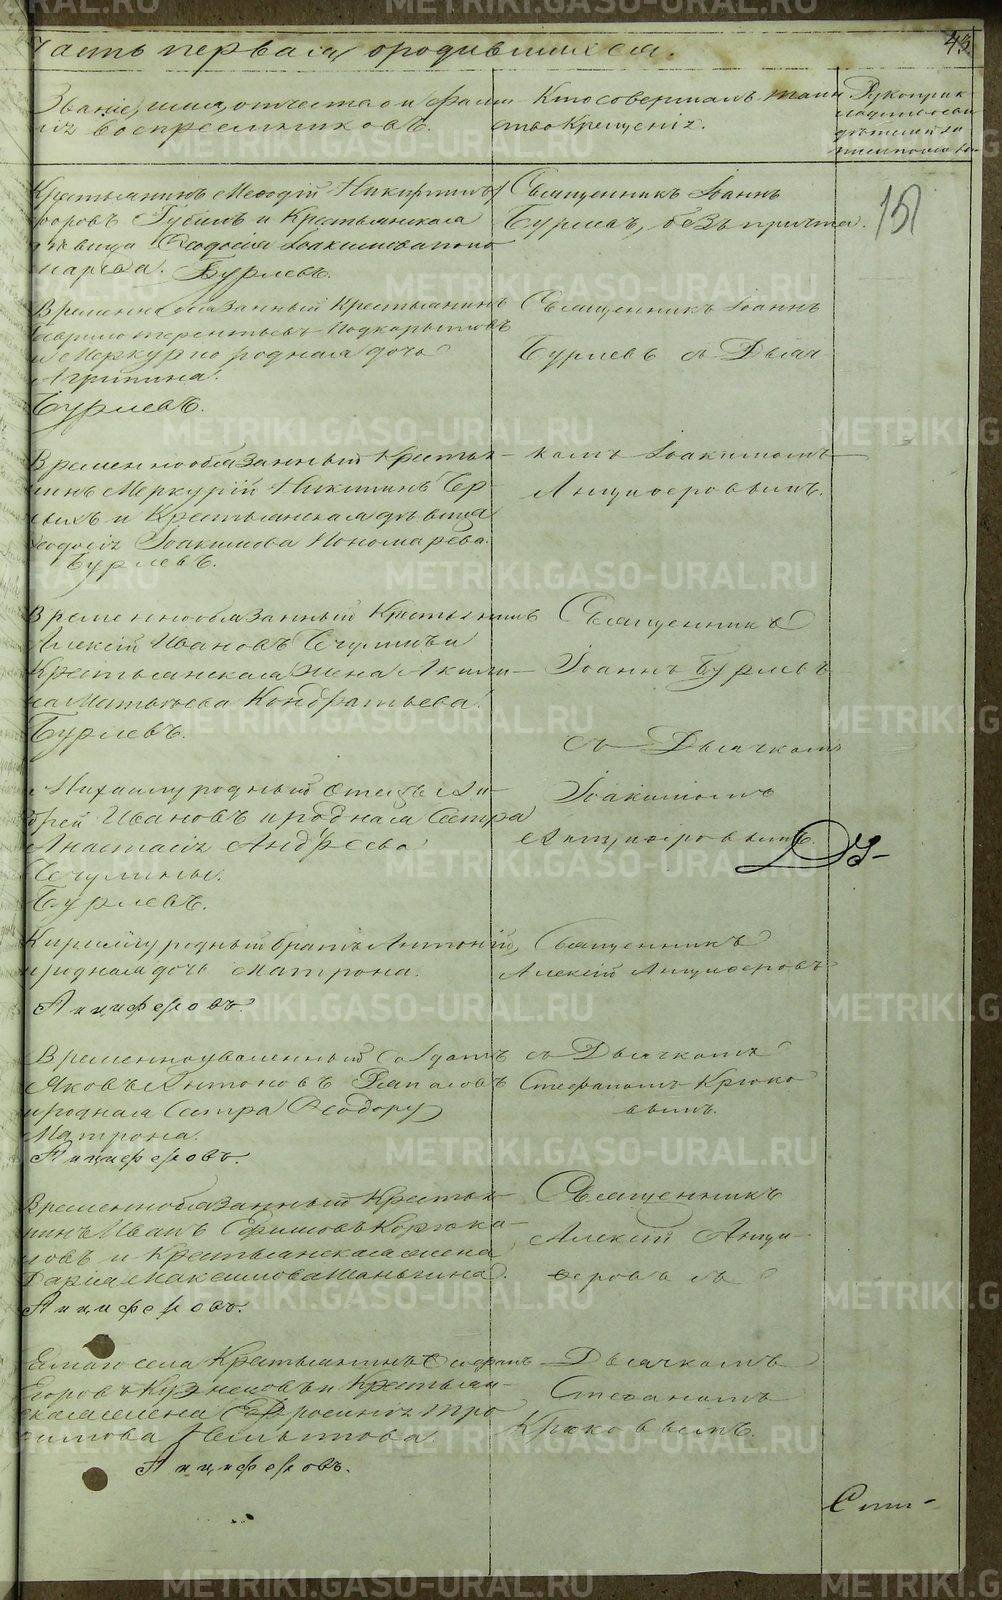 Часть первая, о родившихся.
43
Званіе, имя, отчество и фами-
лія воспреемниковъ.
Кто совершалъ таин
ство Крещенія.
Рукоприк
ладство сви
дѣтелей за
писи по же
Крестьянинъ Меѳодій Никифи
форовъ Губинъ и Крестьянская
дѣвица Ѳеодосія Іоакимова поно
марева. Бурлевъ.
Священникъ Іоаннъ
Бурлевъ, безъ причта.
151
Временнообязанный Крестьянинъ
Гаврило терентьевъ Подкорытовъ
и Меркурію родная дочь
Агрипина.
Бурлевъ.
Священникъ Іоаннъ
Бурлевъ съ Дьяч
Временнообязанный Кресть-
янинъ Меркурій Никитинъ
и Крестьянская дѣвица
Ѳеодосія Іоакимова Пономарева.
Бурлевъ.
комъ Іоакимомъ
Анциферовымъ.
Временнообязанный Крестьянинъ
Алексій Ивановъ Чечулинъ и
Крестьянская жена Акили-
на Матвѣева Кондратьева.
Бурлевъ.
Священникъ
Іоаннъ Бурлевъ
съ Дьячкомъ
Михаилу родный отецъ Ан-
дрей Ивановъ и родная Сестра
Анастасія Андреева
Чечулины.
Бурлевъ.
Іоакимомъ
Анциферовымъ.
Кирилу родный братъ Антоній,
и родная дочь Матрона.
Анциферовъ.
Священникъ
Алексій Анциферовъ
Временноуволенный Солдатъ
Яковъ Антоновъ
и родная Сестра Ѳеодору
Матрона.
Анциферовъ.
съ Дьячкомъ
Стефаномъ Крюко
вымъ.
Временнообязанный Крестья-
нинъ Иванъ Ефимовъ Корюка-
ловъ и Крестьянская жена
Дарія Максимова Шаньгина.
Анциферовъ.
Священникъ
Алексій Анци-
феровъ съ
Того же села Крестьянинъ Стефанъ
Егоровъ Кузнецовъ и Крестьян-
ская жена Евфросинія Тро
фимова
Анциферовъ.
Дьячкомъ
Стефаномъ
Крюковымъ.
METRIKI.GASO-URAL.RU